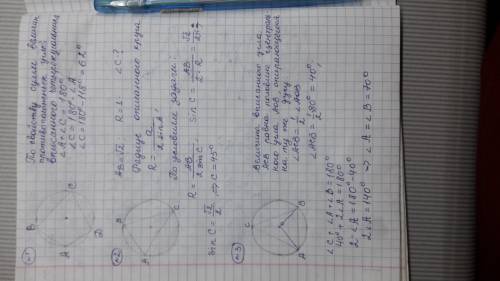 №1
B
A
C
D
По свойству суммы величин
противоположных углов
вписанного четырёхугольника
∠A+∠C = 180°
∠C = 180° - ∠A
∠C = 180° - 118° = 62°
№2
B
A
C
AB = √2; R = 1. ∠C?
Радиус описанного круга
R = a / 2 sin A;
По условиям задачи:
R = AB / 2 sin C; sin C = AB / 2·R = √2 / 2·1;
sin C = √2 / 2, ⇒ C = 45°
№3
C
A
B
Величина вписанного угла
ACB равна половине центрального угла AOB опирающегося
на ту же дугу
∠ACB = 1/2 ∠AOB
∠ACB = 80° / 2 = 40°,
∠C + ∠A + ∠B = 180°
40° + 2∠A = 180°
2∠A = 180° - 40°
2∠A = 140° ⇒ ∠A = ∠B = 70°